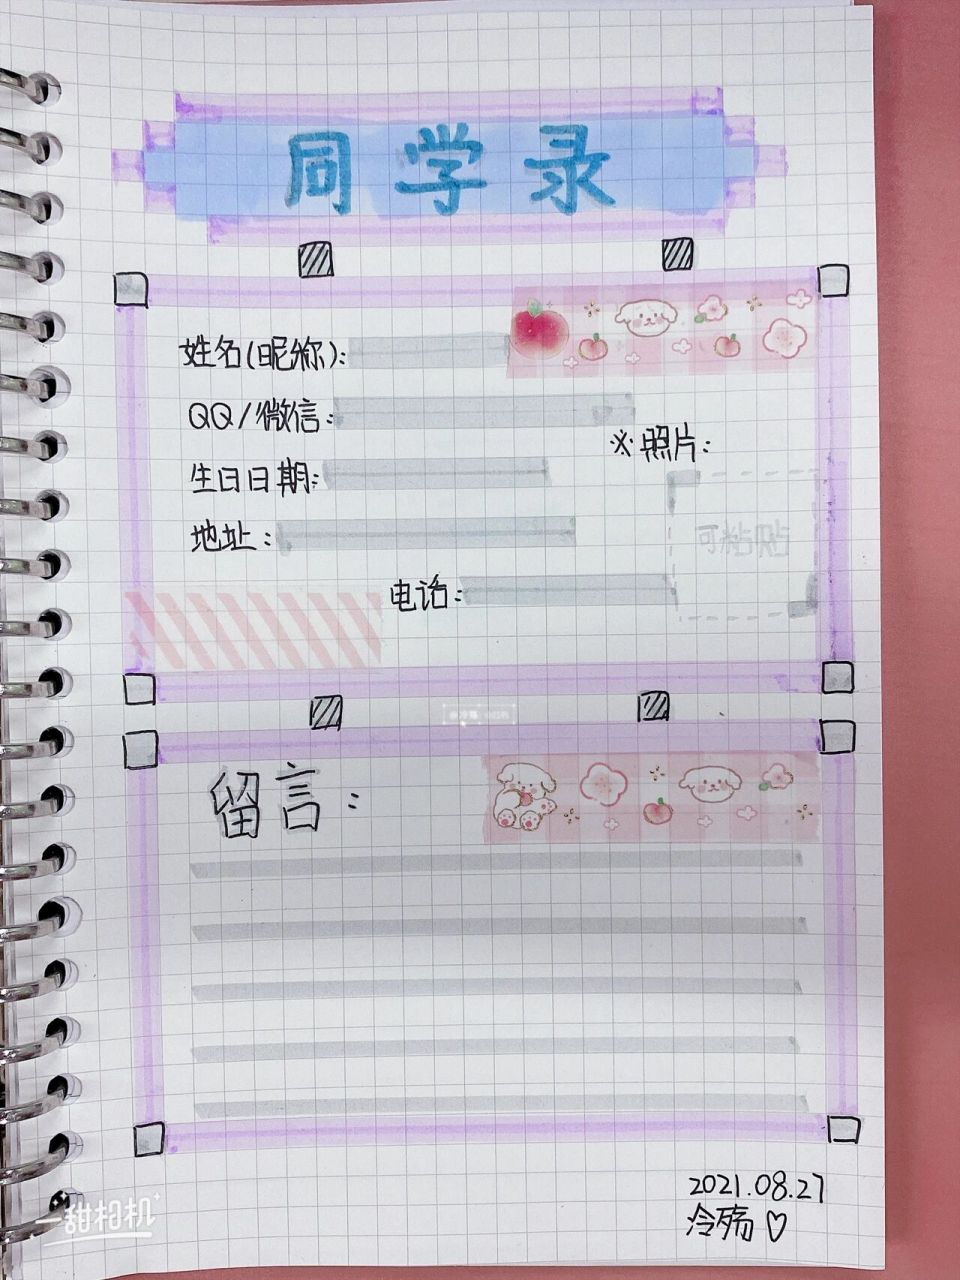 同学录
姓名(昵称):
QQ/微信:
※照片:
生日日期:
地址:
可粘贴
电话:
留言:
2021.08.27
冷殇♡
一甜相机